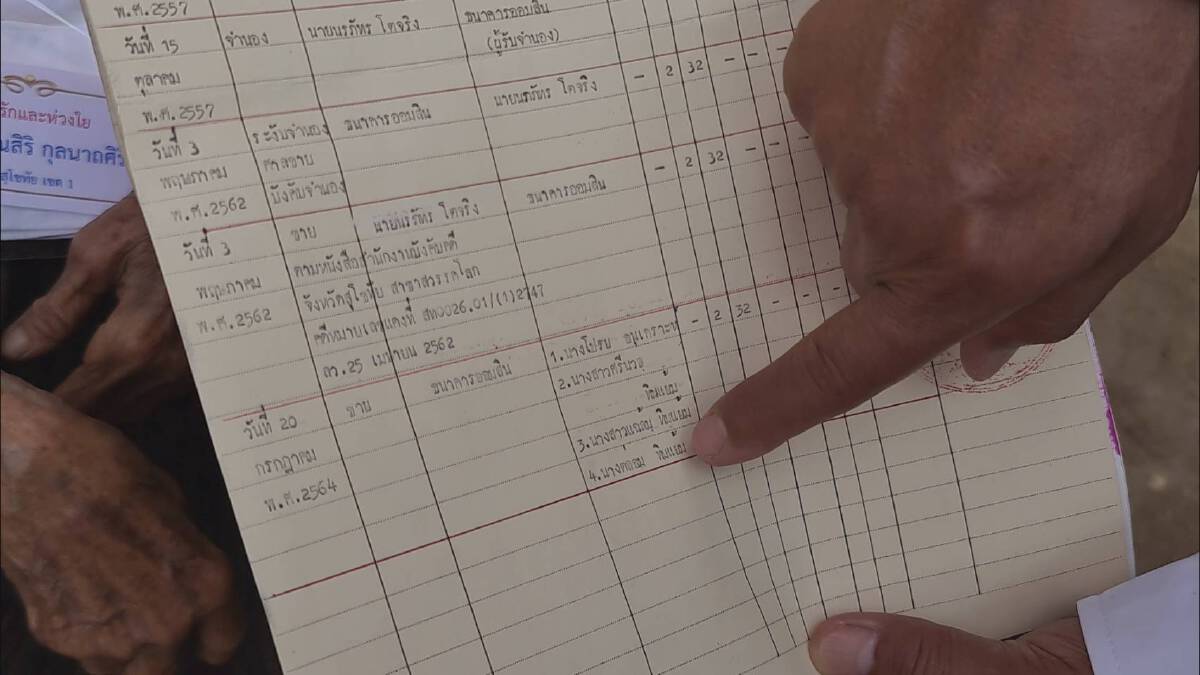 พ.ศ.2557
วันที่ 15 จำนอง นายนรภัทร โตจริง ธนาคารออมสิน
ตุลาคม (ผู้รับจำนอง)
พ.ศ.2557
วันที่ 3 ระงับจำนอง ธนาคารออมสิน นายนรภัทร โตจริง - 2 32 - - -
พฤษภาคม ศาลขาย
พ.ศ.2562 บังคับจำนอง
วันที่ 3 ขาย นายนรภัทร โตจริง ธนาคารออมสิน - 2 32 - - -
พฤษภาคม ตามหนังสือสำนักงานบังคับคดี
พ.ศ.2562 จังหวัดสุโขทัย สาขาสวรรคโลก
คดีหมายเลขแดงที่ สท0026.01/(1)2747
ลว.25 เมษายน 2562
วันที่ 20 ขาย ธนาคารออมสิน 1.นางโปรย อนุเคราะห์ - 2 32 - - -
กรกฎาคม 2.นางสาวศรีนวล
พ.ศ.2564 ทิมแย้ม
3.นางสาว ทิมแย้ม
4.นาง ทิมแย้ม
รักและห่วงใย
กุลนาถศิริ
สุโขทัย เขต 1